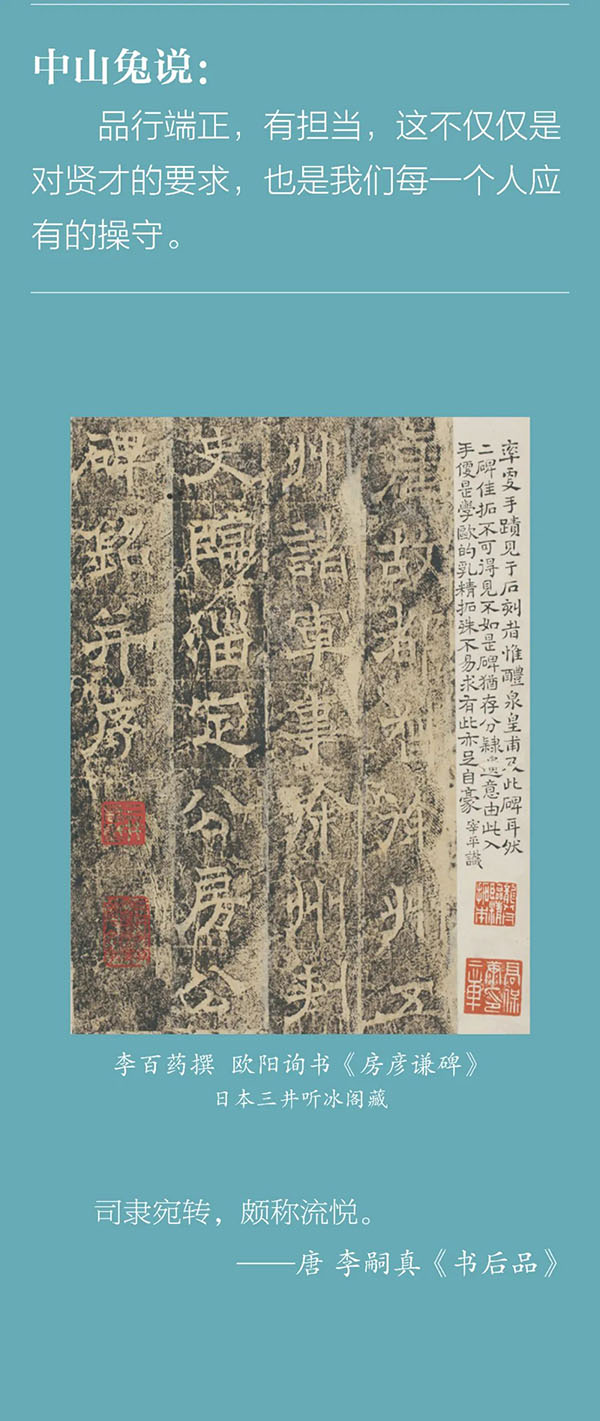 中山兔说：
品行端正，有担当，这不仅仅是
对贤才的要求，也是我们每一个人应
有的操守。
唐故都督徐州五
州諸軍事徐州刺
史臨淄定公房公
碑銘并序
率更手蹟見于石刻者惟醴泉皇甫及此碑耳然
二碑佳拓不可得見不如是碑猶存分隸遺意由此入
手便是學歐的乳精拓殊不易求有此亦足自豪 宰平識
李百药撰 欧阳询书《房彦谦碑》
日本三井听冰阁藏
司隶宛转，颇称流悦。
——唐 李嗣真《书后品》